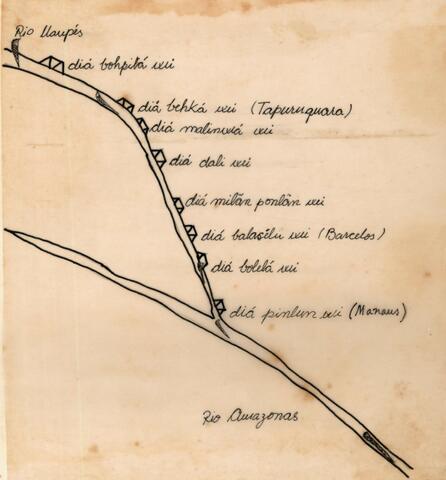 Rio Uaupés
diá bohpitá wii
diá behká wii (Tapuruquara)
diá maliñwiá wii
diá dali wii
diá milãn ponlãn wii
diá balasilu wii (Barcelos)
diá boleká wii
diá pinlun wii (Manaus)
Rio Amazonas